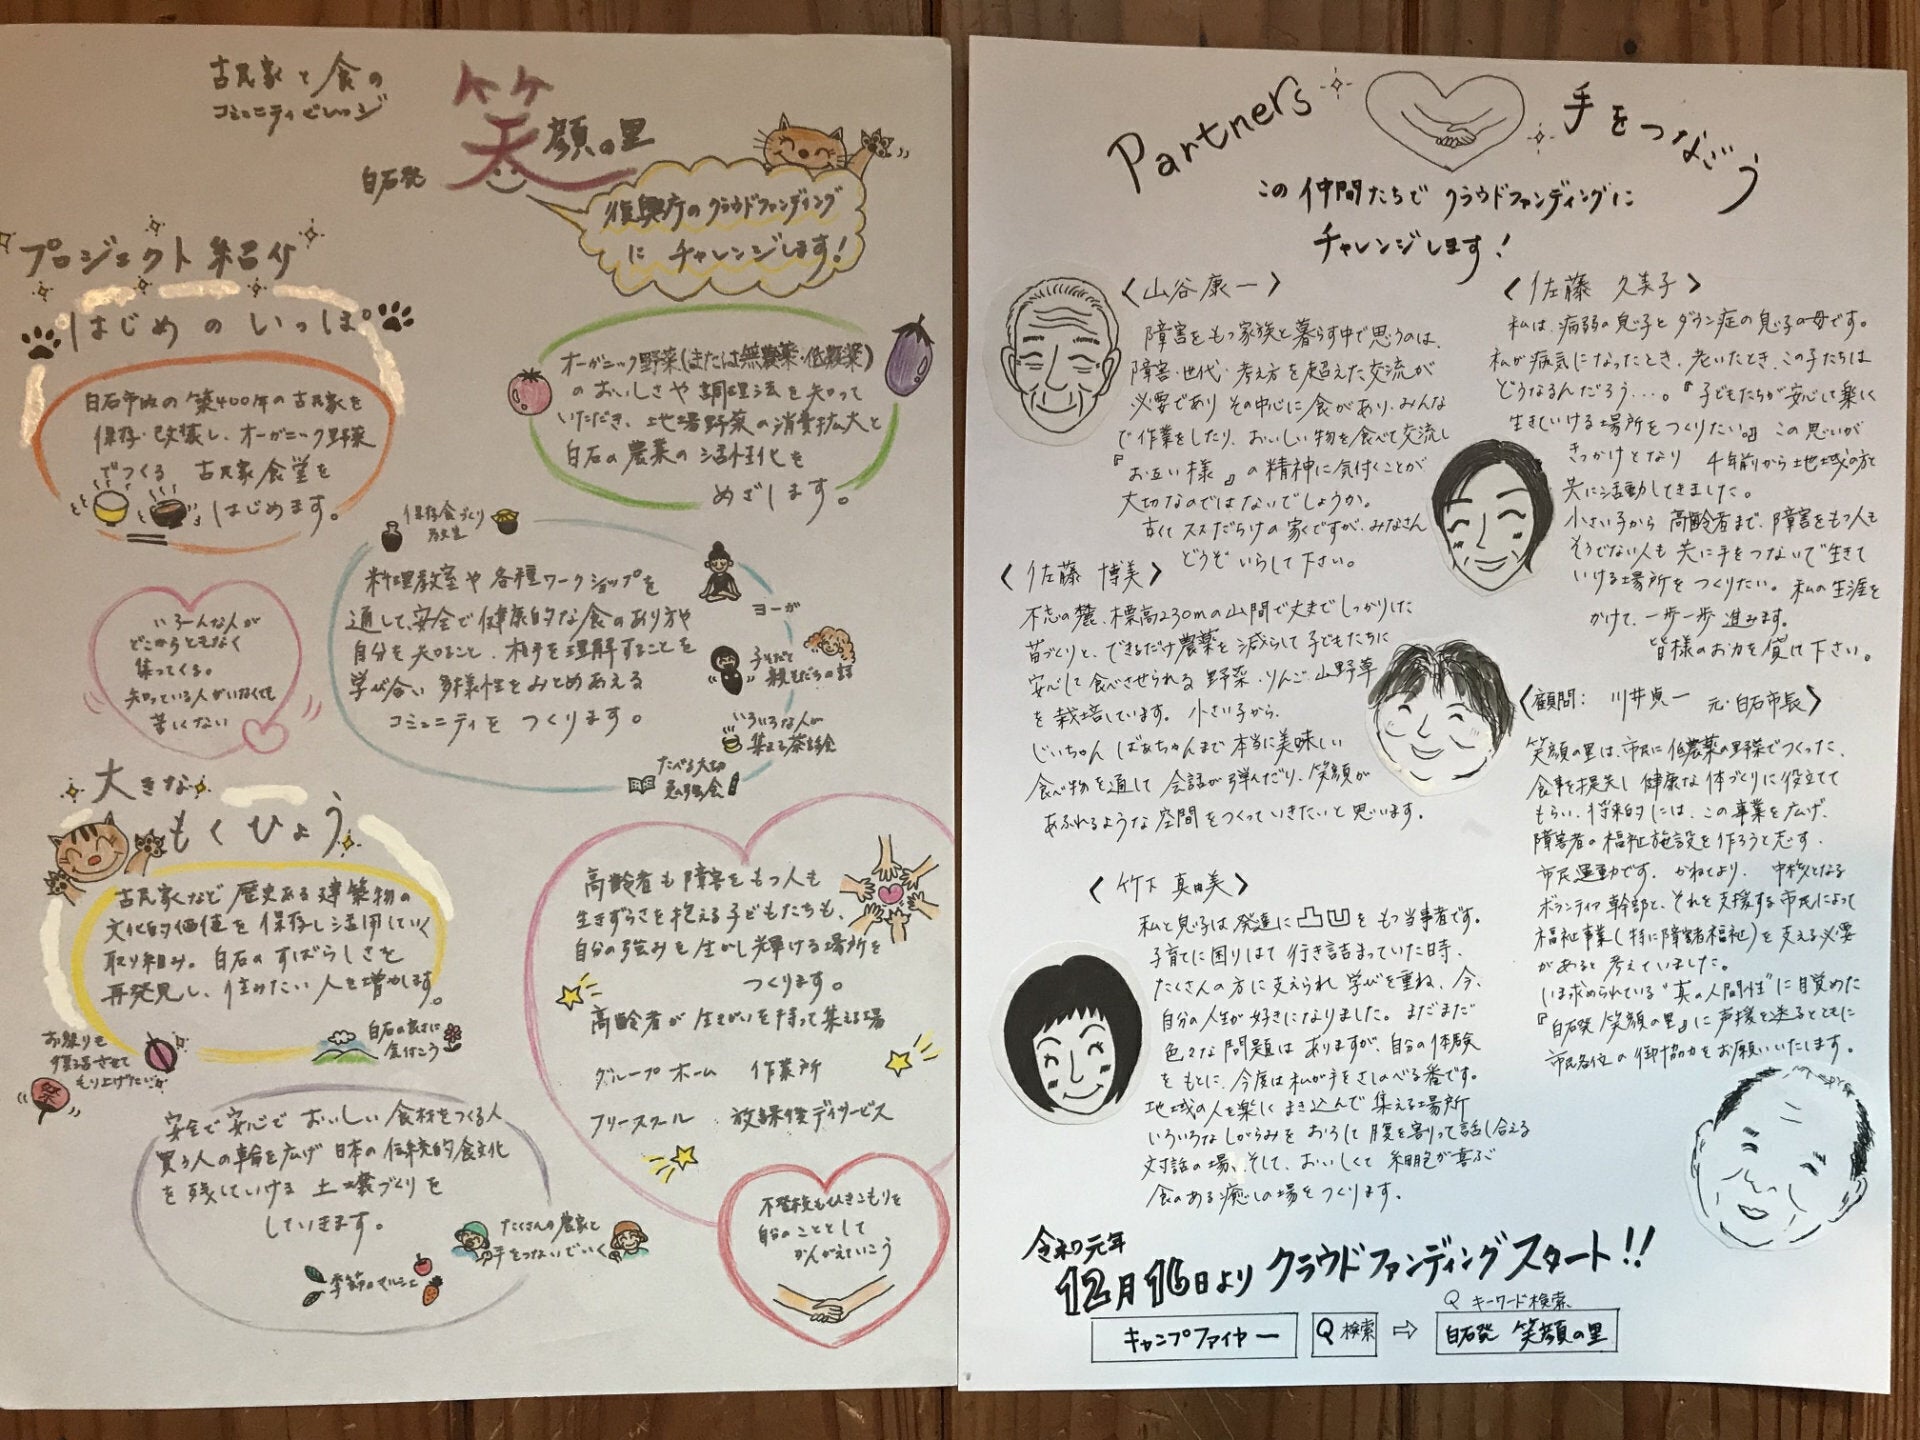 古民家と食の
コミュニティビレッジ
白石発
笑顔の里
復興庁のクラウドファンディング
にチャレンジします!
プロジェクト紹介
はじめのいっぽ
白石市内の築400年の古民家を
保存・改築し、オーガニック野菜
でつくる 古民家食堂を
はじめます。
オーガニック野菜(または無農薬・低農薬)
のおいしさや調理法を知って
いただき、地場野菜の消費拡大と
白石の農業の活性化を
めざします。
保存食づくり
教室
料理教室や各種ワークショップを
通して、安全で健康的な食のあり方や
自分を知ること、相手を理解することを
学び合い 多様性をみとめあえる
コミュニティをつくります。
ヨーガ
子そだて
親そだちの話
いろいろな人が
集まる茶話会
たべる大切
勉強会
いろーんな人が
どこからともなく
集ってくる。
知っている人がいなくても
苦しくない
大きな
もくひょう
古民家など歴史ある建築物の
文化的価値を保存し活用していく
取り組み。白石のすばらしさを
再発見し、住みたい人を増やします。
白石の良さに
気付こう
お祭りも
復活させて
もり上げたい
祭
高齢者も障害をもつ人も
生きずらさを抱える子どもたちも、
自分の強みを生かし輝ける場所を
つくります。
高齢者が生きがいを持って集える場
グループホーム 作業所
フリースクール 放課後デイサービス
安全で安心でおいしい食材をつくる人
買う人の輪を広げ 日本の伝統的食文化
を残していける 土壌づくりを
していきます。
たくさんの農家と
手をつないでいく
季節のマルシェ
不登校もひきこもりも
自分のこととして
かんがえていこう
Partners
手をつなごう
この仲間たちでクラウドファンディングに
チャレンジします!
〈山谷康一〉
障害をもつ家族と暮らす中で思うのは、
障害・世代・考え方を超えた交流が
必要であり その中心に食があり、みんな
で作業をしたり、おいしい物を食べて交流し
『お互い様』の精神に気付くことが
大切なのではないでしょうか。
古くてススだらけの家ですが、みなさん
どうぞいらして下さい。
〈佐藤 久美子〉
私は、病弱の息子とダウン症の息子の母です。
私が病気になったとき、老いたとき、この子たちは
どうなるんだろう…。『子どもたちが安心して楽しく
生きていける場所をつくりたい。』この思いが
きっかけとなり 千年前から地域の方と
共に活動してきました。
小さい子から高齢者まで、障害をもつ人も
そうでない人も 共に手をつないで生きて
いける場所をつくりたい。私の生涯を
かけて、一歩一歩進みます。
皆様のお力を貸して下さい。
〈佐藤 博美〉
不忘の麓、標高230mの山間で丈夫でしっかりした
苗づくりと、できるだけ農薬を減らして子どもたちに
安心して食べさせられる野菜・りんご・山野草
を栽培しています。小さい子から、
じいちゃん ばあちゃんまで本当に美味しい
食べ物を通して会話が弾んだり、笑顔が
あふれるような空間をつくっていきたいと思います。
〈顧問: 川井貞一 元・白石市長〉
笑顔の里は、市民に低農薬の野菜でつくった、
食事を提供し健康な体づくりに役立てて
もらい、将来的には、この事業を広げ、
障害者の福祉施設を作ろうと志す、
市民運動です。かねてより、中核となる
ボランティア幹部と、それを支援する市民によって
福祉事業(特に障害者福祉)を支える必要
があると考えていました。
いま求められている"真の人間性"に目覚めた
『白石発 笑顔の里』に声援を送るとともに
市民各位の御協力をお願いいたします。
〈竹下 真由美〉
私と息子は発達に凸凹をもつ当事者です。
子育てに困りはて行き詰まっていた時、
たくさんの方に支えられ学びを重ね、今、
自分の人生が好きになりました。まだまだ
色々な問題はありますが、自分の体験
をもとに、今度は私が手をさしのべる番です。
地域の人を楽しくまき込んで集える場所
いろいろなしがらみをおろして腹を割って話し合える
対話の場、そして、おいしくて細胞が喜ぶ
食のある癒しの場をつくります。
令和元年
12月16日よりクラウドファンディングスタート!!
Q キーワード検索
キャンプファイヤー Q検索 ⇨ 白石発 笑顔の里